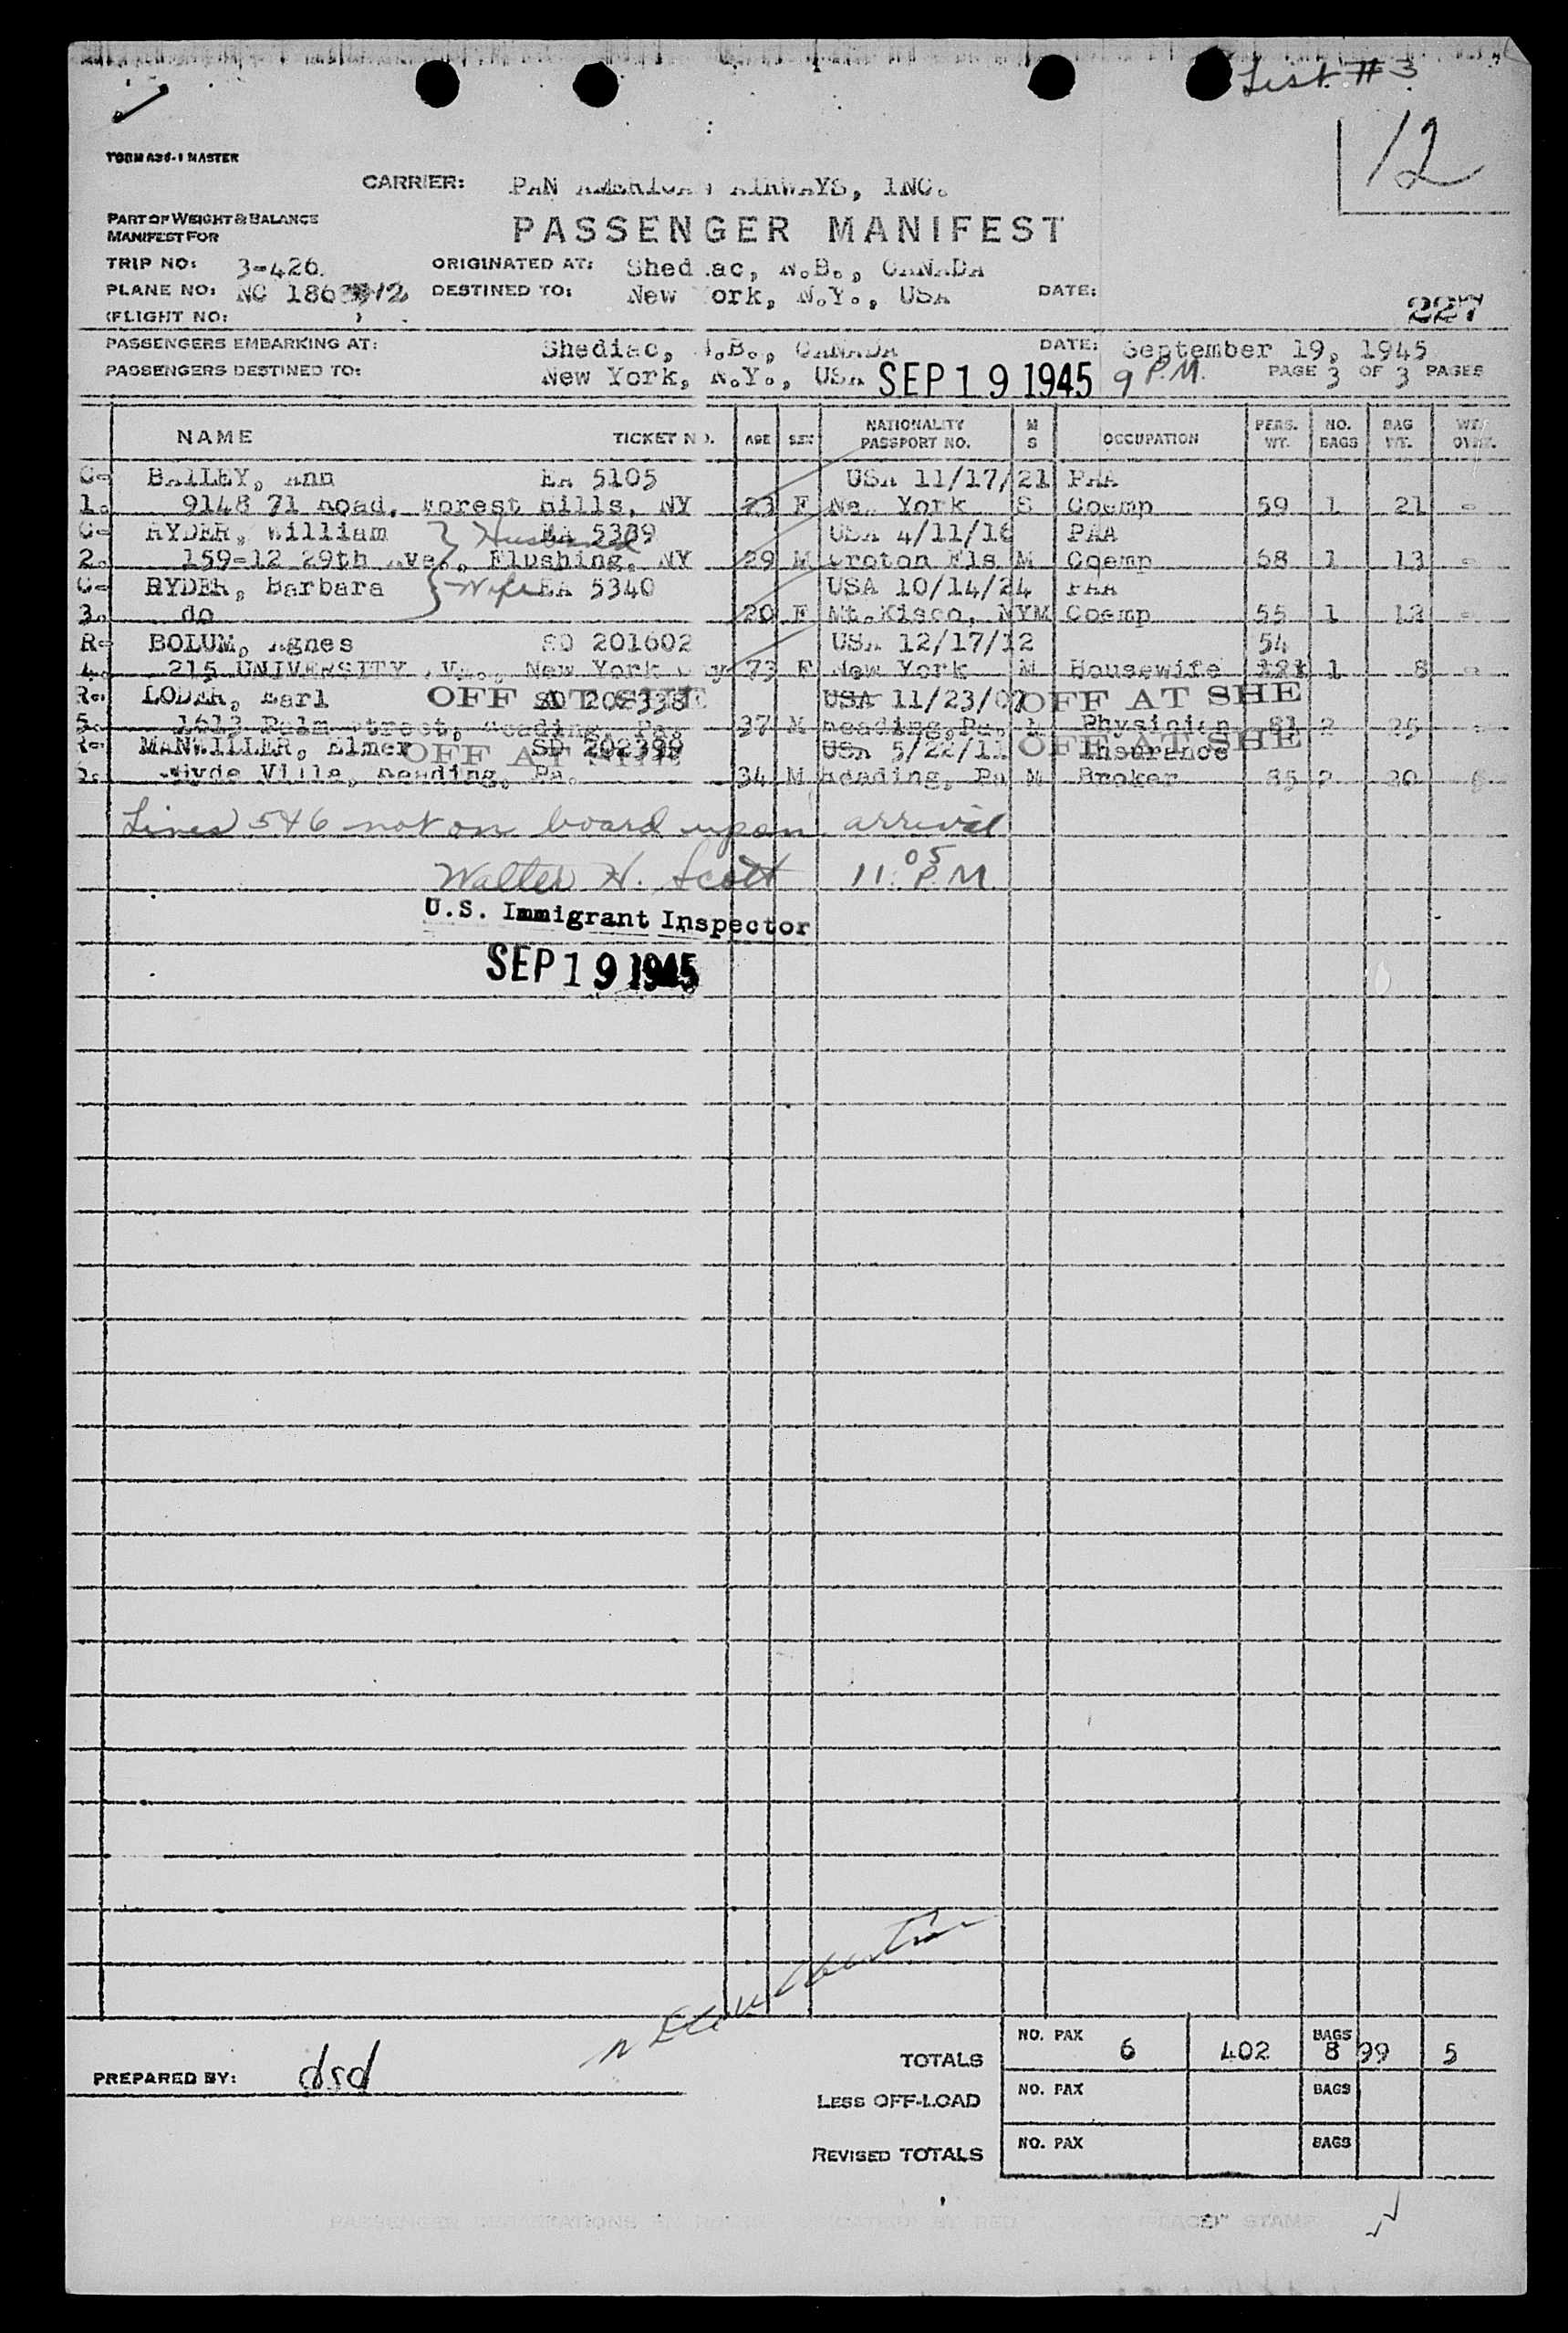 List #3
12
FORM A36-1 MASTER
CARRIER: PAN AMERICAN AIRWAYS, INC.
PART OF WEIGHT & BALANCE
MANIFEST FOR
PASSENGER MANIFEST
TRIP NO: 3-426 ORIGINATED AT: Shediac, N.B., CANADA
PLANE NO: NC 186 12 DESTINED TO: New York, N.Y., USA DATE:
(FLIGHT NO: ) 227
PASSENGERS EMBARKING AT: Shediac, N.B., CANADA DATE: September 19, 1945
PASSENGERS DESTINED TO: New York, N.Y., USA SEP 19 1945 9 P.M. PAGE 3 OF 3 PAGES
NAME TICKET NO. AGE SEX NATIONALITY PASSPORT NO. M S OCCUPATION PERS. WT. NO. BAGS BAG WT. WT.
C- BAILEY, Ann EA 5105 USA 11/17/21 PAA
1. 9148 71 Road, Forest Hills, NY 23 F New York S Coemp 59 1 21 -
C- RYDER, William Husband EA 5339 USA 4/11/16 PAA
2. 159-12 29th Ave., Flushing, NY 29 M Croton Fls M Coemp 68 1 13 -
C- RYDER, Barbara Wife EA 5340 USA 10/14/24 PAA
3. do 20 F Mt.Kisco, NY M Coemp 55 1 12 -
R- BOLUM, Agnes SD 201602 USA 12/17/12 54
4. 215 UNIVERSITY AVe., New York City 73 F New York M Housewife 121 1 8 -
R- LODER, Earl OFF AT SHE SD 202338 USA 11/23/07 OFF AT SHE
5. 1613 Palm Street, Reading, Pa. 37 M Reading,Pa. M Physician 81 2 25 -
R- MANWILLER, Elmer OFF AT SHE SD 202399 USA 5/22/11 Insurance OFF AT SHE
Hyde Villa, Reading, Pa. 34 M Reading, Pa M Broker 85 2 20 5
Lines 5 & 6 not on board upon arrival
Walter H. Scott 11:05 P.M.
U.S. Immigrant Inspector
SEP 19 1945
PREPARED BY: dsd
TOTALS NO. PAX 6 402 BAGS 8 99 5
LESS OFF-LOAD NO. PAX BAGS
REVISED TOTALS NO. PAX BAGS